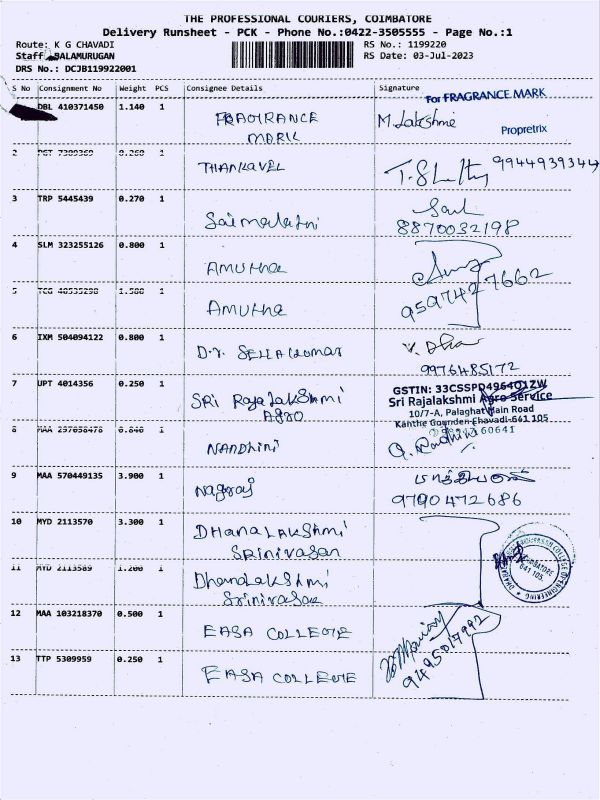 THE PROFESSIONAL COURIERS, COIMBATORE
Delivery Runsheet - PCK - Phone No.:0422-3505555 - Page No.:1
Route: K G CHAVADI
RS No.: 1199220
Staff BALAMURUGAN
RS Date: 03-Jul-2023
DRS No.: DCJB119922001
S No Consignment No Weight PCS Consignee Details Signature
For FRAGRANCE MARK
DBL 410371450 1.140 1 FRAGIRANCE MARK M. Lakshmi
Propretrix
2 1 THANKAVEL 9944939344
3 TRP 5445439 0.270 1 Saimalathi
8870032198
4 SLM 323255126 0.800 1 AMUTHA
5 1 AMUTHA
9597427662
6 IXM 504094122 0.800 1 D.r. SELLAKUMAR
9976485172
7 UPT 4014356 0.250 1 SRI RajaLakShmi AGRO
GSTIN: 33CSSPD4964Q1ZW
Sri Rajalakshmi Agro Service
10/7-A, Palaghat Main Road
Kanthe Gounden Chavadi-641 105
8 1 NANDHINI
9 MAA 570449135 3.900 1 Nagaraj
9790472686
10 MYD 2113570 3.300 1 DHANALAKSHMI SRINIVASAN
11 MYD 2113589 1.200 1 DhanaLakShmi Srinivasan
COIMBATORE
641 105.
12 MAA 103218370 0.500 1 EASA COLLEGE
13 TTP 5309959 0.250 1 EASA COLLEGE
9495017992